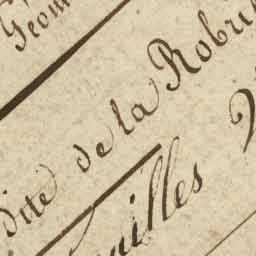 Géom
dite de la Robri
uilles